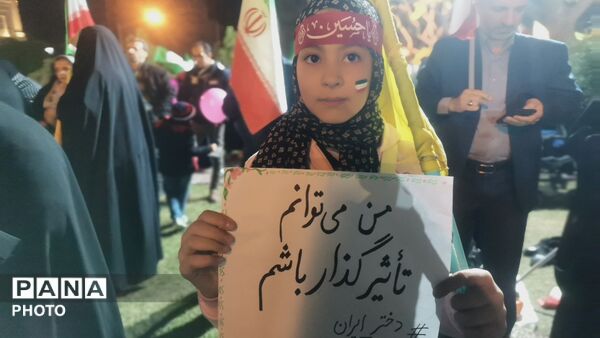 حسین
من می‌توانم
تأثیرگذار باشم
#دختر ایران
PANA
PHOTO